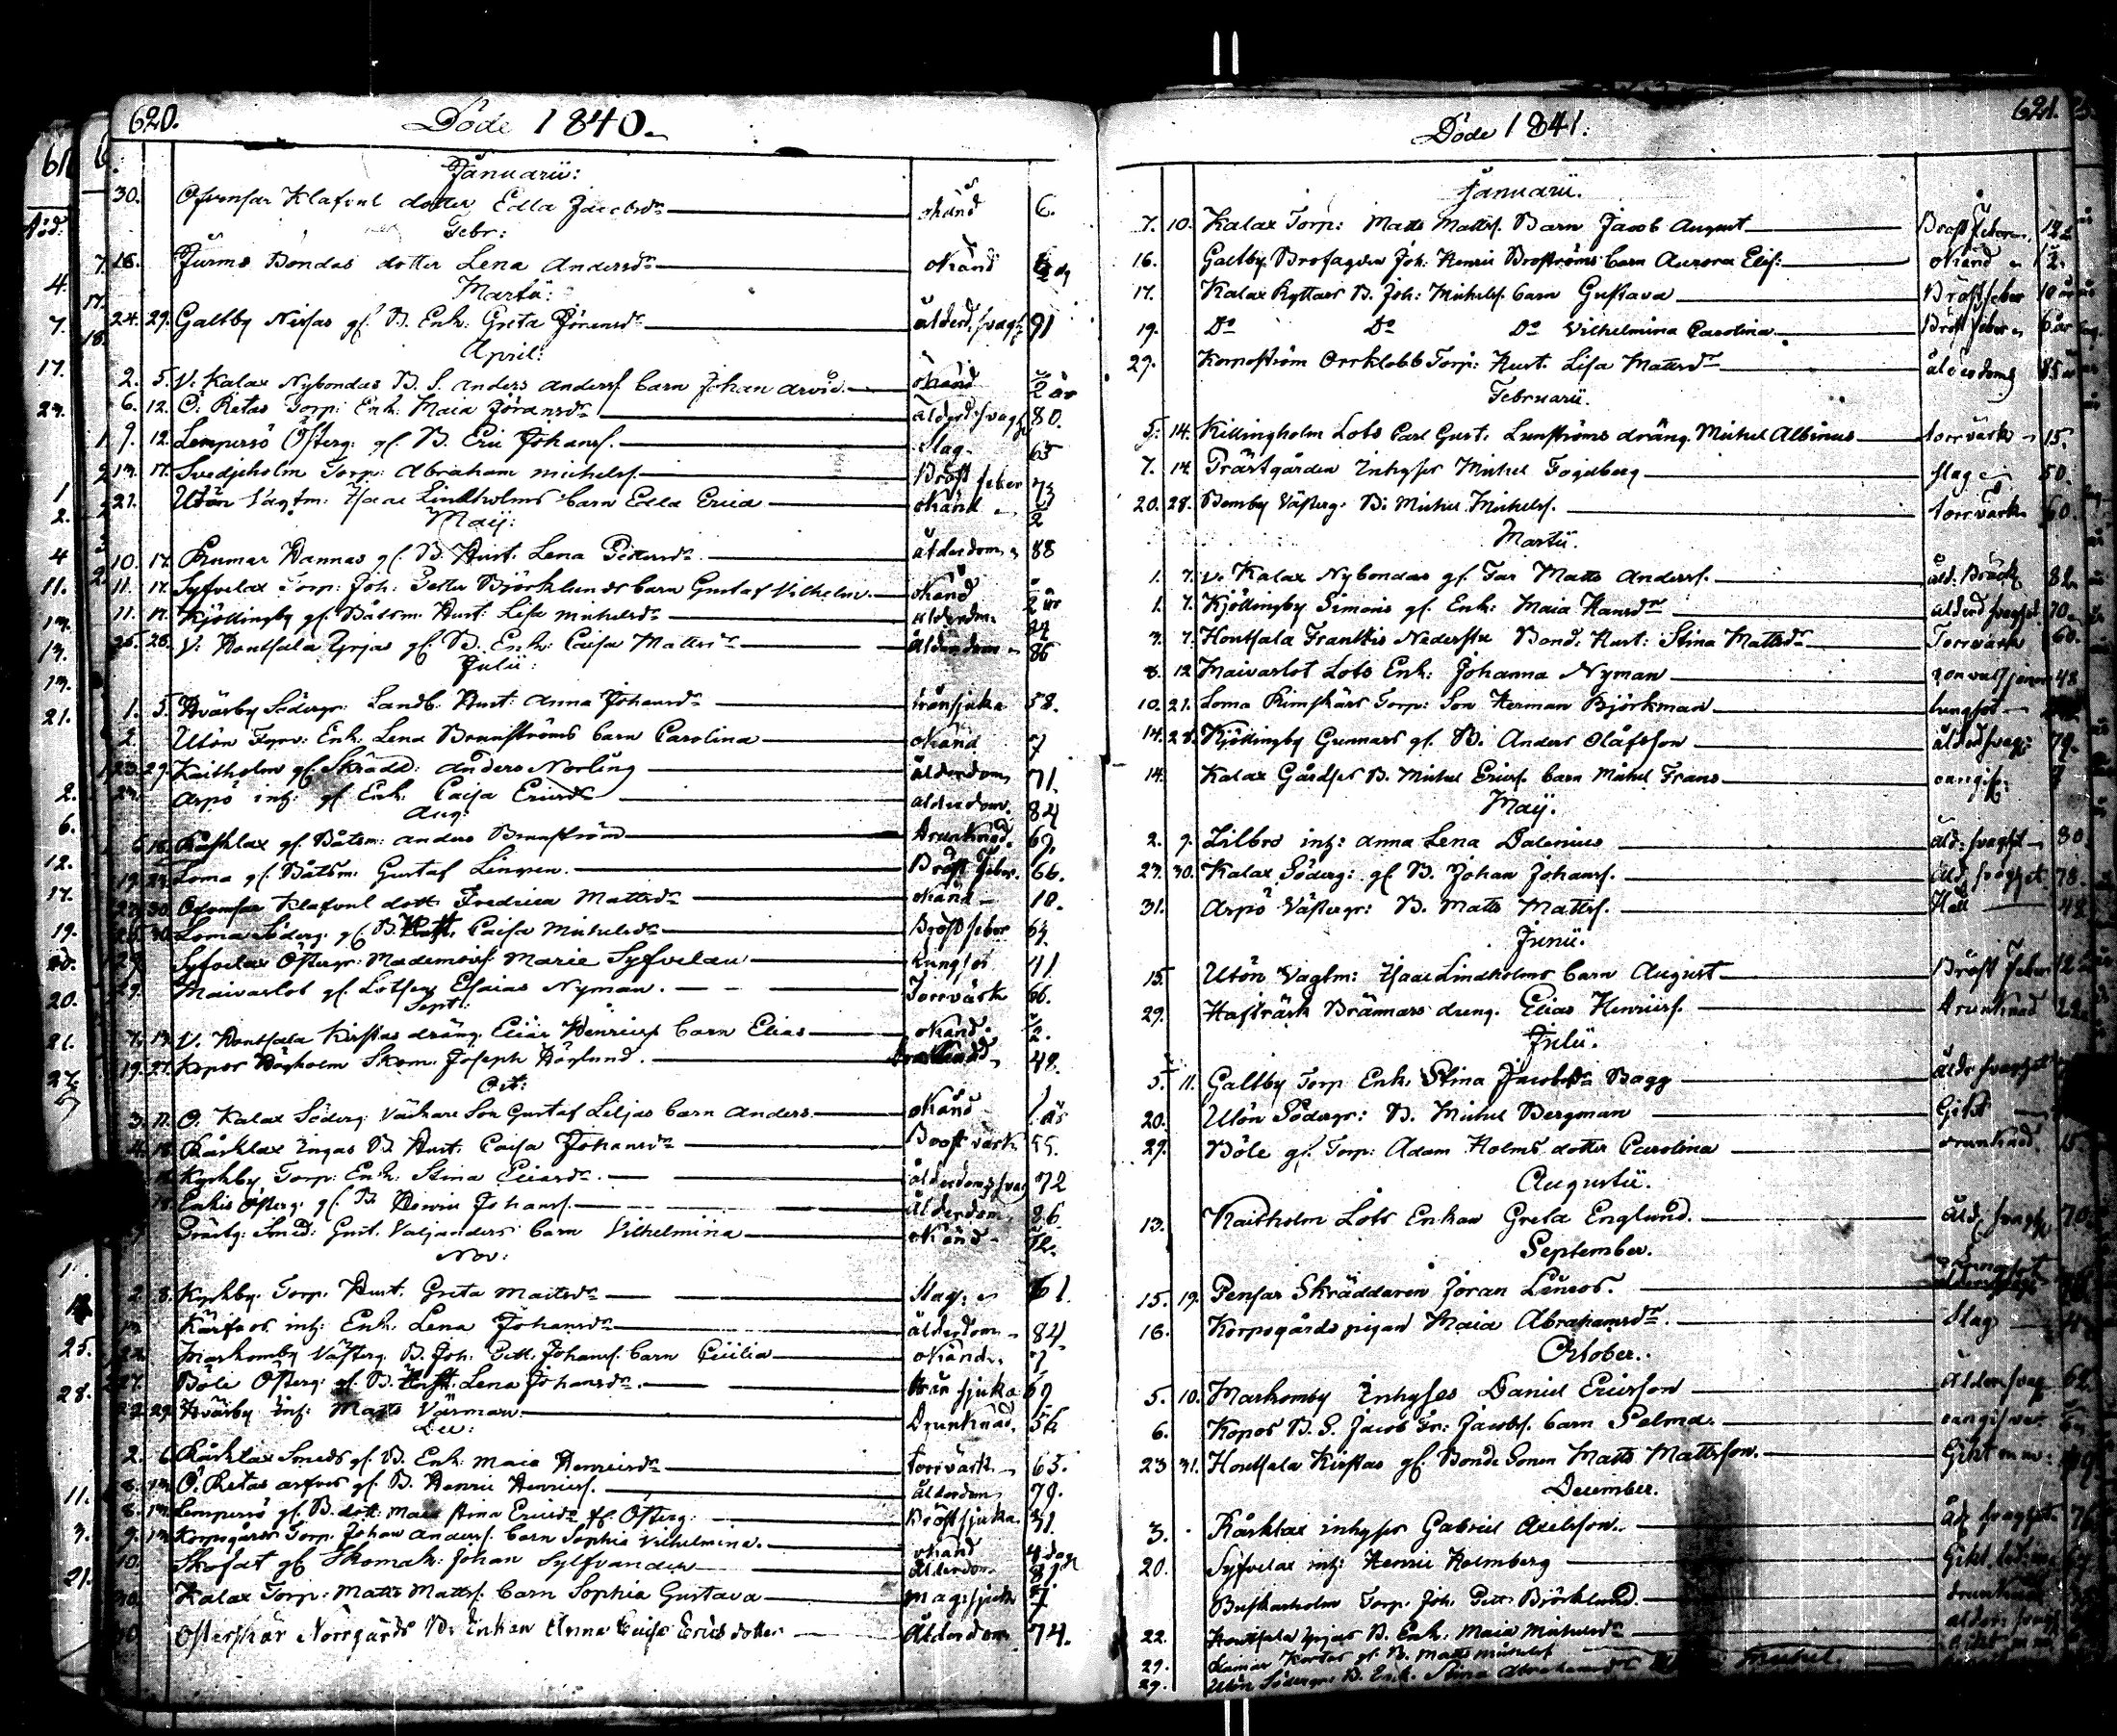 620.
Döde 1840.
Januarii:
30. Ofvensar Klafvul dotter Edla Jacobsdr okänd 6.
Febr:
7. 16. Jurmo Bondas dotter Lena Andersdr okänd
Martii:
24. 29. Galtby Nissas gl. B. Enk: Greta Jöransdr ålderd. svagh 91
April:
2. 5. V. Kalax Nybondas B. S. Anders Anderss. barn Johan Arvid okänd 2 år
6. 12. Ö. Retas Torp: Enk: Maia Jöransdr ålderd. svagh 80.
9. 12. Lempersö Österg: gl. B. Eric Johanss. Slag 65
17. Svedjeholm Torp: Abraham Michelss. Bröst feber 73
21. Utön Vagtm: Isaac Lindholms barn Edla Erica okänd 2
Maij:
10. 17. Rumar Hannas gl. B. Hust. Lena Pettersdr ålderdom 88
11. 17. Syfvelax Torp: Joh: Petter Björklunds barn Gustaf Vilhelm okänd 2 år
11. 17. Kjöttingby gl. Båtsm: Hust: Lisa Michelsdr ålderdm.
25. 28. V. Hontsala Yrjas gl. B. Enk: Caisa Mattsdr ålderdom 86
Julii:
1. 5. Hvärby Södergr: Landb. Hust: Anna Johansdr bränsjuka 58.
2. Utön Fyrv: Enk: Lena Brunströms barn Carolina okänd 7
23. 29. Kaitholm gl. Skrädd: Anders Norling ålderdom 71.
Arpö inh: gl. Enk: Caisa Ericsdr ålderdom. 84
Aug:
16. Råsklax gl. Båtsm: Anders Brunström Drunknad. 69.
19. 23. Loma gl. Båtsm: Gustaf Limpen. Bröst feber. 66.
30. Ofvensar Klafvul dott: Fredrica Mattsdr okänd 10.
30. Loma Söderg: gl. B. Hust. Caisa Michelsdr Bröst feber 64.
Syfvelax Östergr: Mademois. Marie Syfvelau Lungsot 41
29. Maivarlot gl. Lotsen Esaias Nyman. Torrvärk 66.
Sept:
7. 13. V. Hontsala Kirstas dräng Elias Henricss barn Elias okänd. 2.
19. 27. Kopos Högholm Skom. Joseph Höglund. 48.
Oct:
3. 11. O. Kalax Söderg: Väckare Son Gustaf Liljas barn Anders okänd 1. år
18. Råsklax Ingas B. Hust. Caisa Johansdr Bröst värk 55.
Kyrkby Torp: Enk: Stina Ericsdr ålderdoms svag 72
18. Enkis Österg: gl. B. Henric Johanss. ålderdom 86
Prästg: Smed: Gust. Valjanders barn Vilhelmina okänd
Nov:
2. 8. Kyrkby Torp. Hust. Greta Mattsdr Slag 61.
Kärsos inh: Enk: Lena Johansdr ålderdom 84
22. Markomby Västerg. B. Joh: Pett: Johanss. barn Cecilia okänd. 7
Böle Österg: gl. B. Hust. Lena Johansdr. bränsjuka 69
22. 29. Hvärby inh: Matts Värman Drunknad. 56
Dec:
2. 6. Råsklax Smeds gl. B. Enk: Maia Henricsdr torrvärk 63.
8. 13. Ö. Retas Arfvos gl. B. Henric Henricss. ålderdom 79.
8. 13. Lempersö gl. B. dott: Maia Stina Ericsdr fr. Österg: Bröstsjuka 31.
9. 13. Korpogårds Torp: Johan Anderss. barn Sophia Vilhelmina. okänd 4 dag
10. Skofat gl. Skomak: Johan Sylfvander ålderdom
Kalax Torp: Matts Mattss. barn Sophia Gustava magsjuk 7
Österskär Norrgårds B. Enkan Anna Caisa Ericsdotter Ålderdom 74.
621.
Döde 1841.
Januarii.
7. 10. Kalax Torp: Matts Mattss. Barn Jacob August Bröst feber
16. Galtby Brofagden Joh: Henric Broströms barn Aurora Elis: okänd
17. Kalax Ryttars B. Joh: Michelss. barn Gustava Bröstfeber 10 år
19. Do Do Do Vilhelmina Carolina Bröstfeber 6 år
29. Korpoström Orrklobb Torp: Hust. Lisa Mattsdr ålderdoms 85 år
Februarii.
5. 14. Killingholm Lots Carl Gust: Lunströms dräng Michel Albinus torrvärk 15.
7. 14. Prästgården Inhyses Michel Fogelberg slag 50.
20. 28. Bomby Västerg: B. Michel Michelss. torrvärk 60.
Martii.
1. 7. V. Kalax Nybondas gl. Far Matts Anderss. åld. Bräck 82
1. 7. Kjöttingby Simons gl. Enk: Maia Hansdr ålderd svaghet 70
3. 7. Hontsala Franttis Nederste Bond. Hust: Stina Mattsdr Torrvärk 60.
8. 12 Maivarlot Lots Enk: Johanna Nyman 48
10. 21. Loma Rimskärs Torp: Son Herman Björkman lungsot
14. 28. Kjöttingby Gunnars gl. B. Anders Olofsson ålderd svag: 79.
14. Kalax Gårdses B. Michel Ericss. barn Michel Frans oangif: 7
Maij.
2. 9. Lilbro inh: Anna Lena Dalenius Åld: svaghet 80.
23. 30. Kalax Söderg: gl. B. Johan Johanss. Åld. svaghet 78.
31. Arpö Västergr: B. Matts Mattss. Håll 48
Junii.
15. Utön Vagtm: Isaac Lindholms barn August Bröst feber
29. Hafträsk Brännars dreng Elias Henricss. drunknad 22
Julii.
5. 11. Galtby Torp Enk: Stina Jacobsdr Bagg åldr. svaghet
20. Utön Södergr: B. Michel Bergman Gikt
29. Böle gl. Torp: Adam Holms dotter Carolina drunknad 15.
Augustii.
13. Kaitholm Lots Enkan Greta Englund. åld. svagh 70
September.
15. 19. Pensar Skräddaren Jöran Leneos.
16. Korpogårds pigan Maia Abrahamsdr. Slag
October.
5. 10. Markomby Inhyses Daniel Ericsson Ålder svag 62
6. Kopos B. S. Jacob Jacobss. barn Selma. oangifvet
23 31. Hontsala Kirstas gl. Bonde Sonen Matts Mattsson. Gikt
December.
3. Råsklax inhyses Gabriel Axelsson. åld svaghet 76
20. Syfvelax inh: Henric Holmberg Gikt
Buskasholm Torp. Joh. Pett. Björklund. drunknad
22. Hontsala Yrjas B. Enk. Maia Michelsdr ålder. svagh
29. Rumar Kortas gl. B. Matts Michelss
29. Utön Södergr. B. Enk. Stina Abrahamsdr